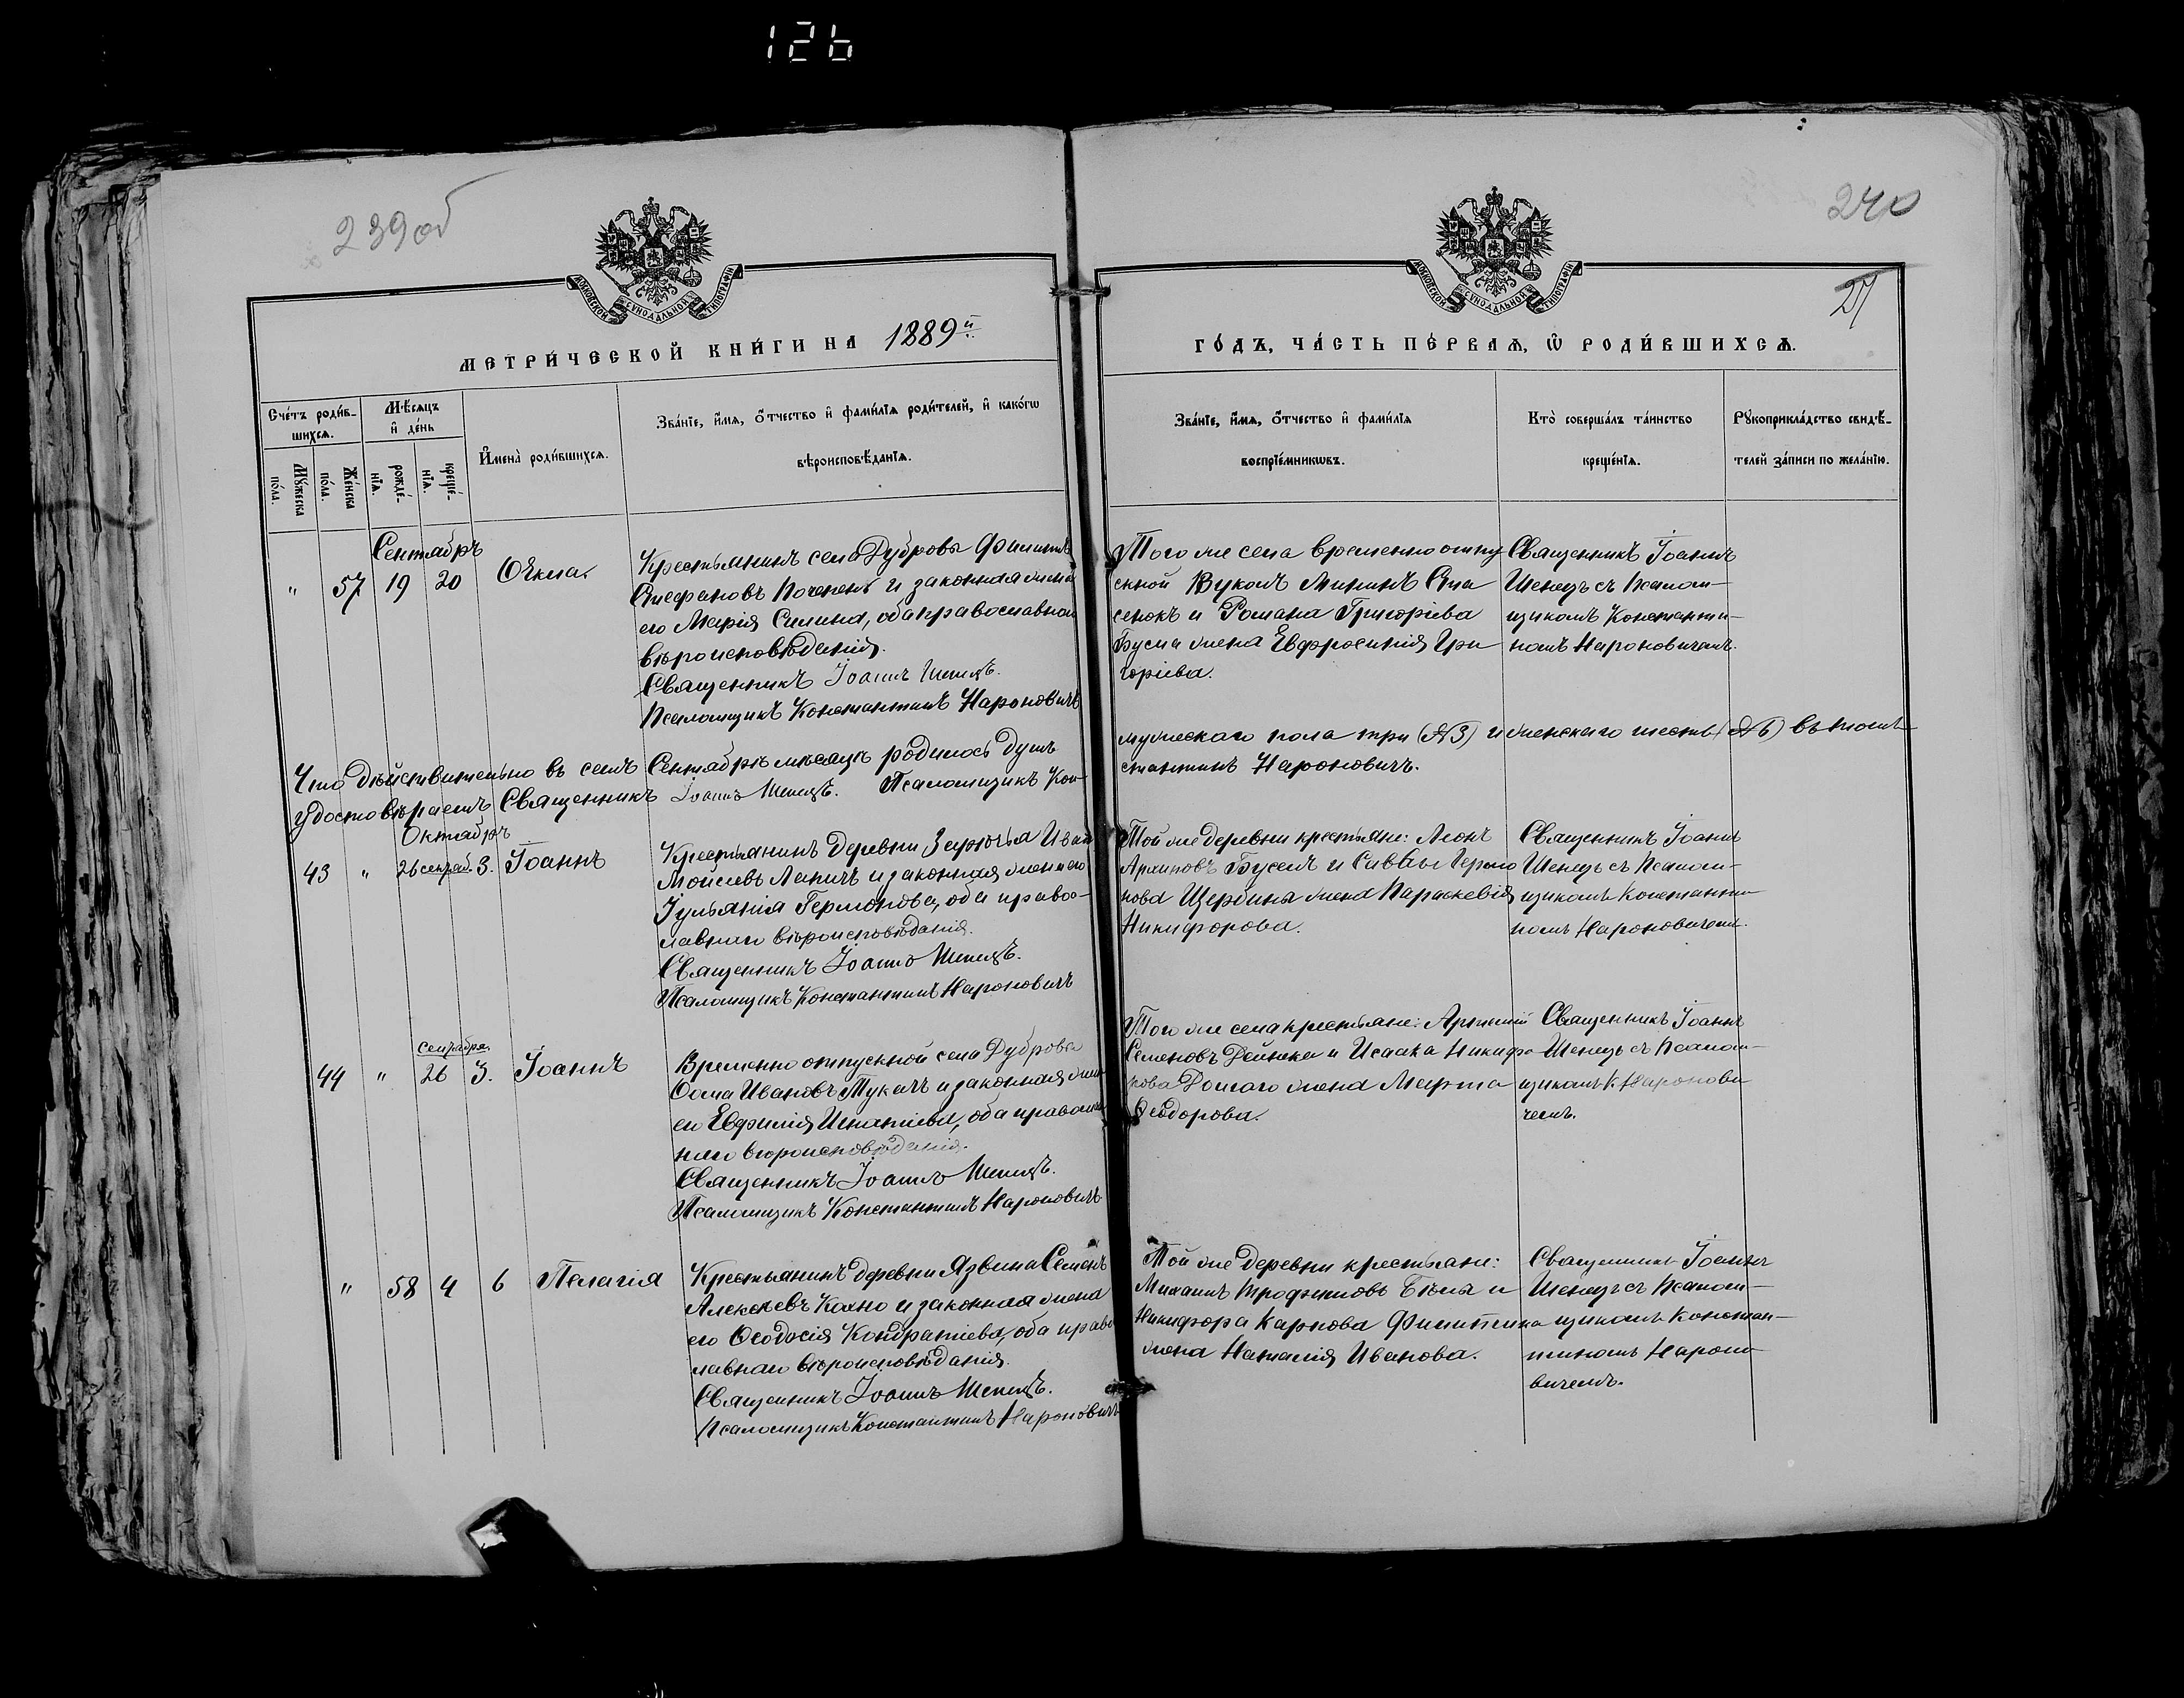 126
239 об
240
27
МОСКОВСКОЙ СѴНОДАЛЬНОЙ ТИПОГРАФІИ
МОСКОВСКОЙ СѴНОДАЛЬНОЙ ТИПОГРАФІИ
МЕТРИ́ЧЕСКОЙ КНИ́ГИ НА 1889й
ГО́ДЪ, ЧА́СТЬ ПЕ́РВАЯ, Ѡ҆ РОДИ́ВШИХСЯ.
Сче́тъ роди́в-
шихся.
Мѣ́сяцъ
и҆ де́нь
Мꙋ́жеска
по́ла.
Же́нска
по́ла.
рожде́-
нїя.
креще́-
нїя.
И҆мена̀ роди́вшихся.
Зва́нїе, и҆́мя, ѻ҆́тчество и҆ фами́лїя роди́телей, и҆ како́гѡ
вѣроисповѣ́данїя.
Зва́нїе, и҆́мя, ѻ҆́тчество и҆ фами́лїя
воспрїе́мникѡвъ.
Кто̀ соверша́лъ та́инство
креще́нїя.
Рꙋкоприкла́дство свидѣ́-
телей за́писи по жела́нїю.
Сентябрь
" 57 19 20 Ѳекла.
Крестьянинъ села Дубровы Филиппъ
Стефановъ и законная жена
его Марія Силина, оба православнаго
вѣроисповѣданія.
Священникъ Іоаннъ Шепецъ.
Псаломщикъ Константинъ Нароновичъ
Того же села временно отпу
скной Вукомъ Мининъ Ста
сенокъ и Романа Григоріева
Бусла жена Евфросинія Гри
горіева.
Священникъ Іоаннъ
Шепецъ съ псалом-
щикомъ Константи-
номъ Нароновичемъ.
Что дѣйствительно въ семъ Сентябрѣ мѣсяцѣ родилось душъ
мужескаго пола три (№3) и женскаго шесть (№6) въ томъ
удостовѣряемъ Священникъ Іоаннъ Шепецъ. Псаломщикъ Кон-
стантинъ Нароновичъ.
Октябрь
43 " 26 сентяб. 3. Іоаннъ
Крестьянинъ деревни Иванъ
Моисеевъ Лапичъ и законная жена его
Іульянія Гермонова, оба правос-
лавнаго вѣроисповѣданія.
Священникъ Іоаннъ Шепецъ.
Псаломщикъ Константинъ Нароновичъ
Той же деревни крестьяне: Леонъ
Архиповъ Буселъ и Саввы Гермо
нова Щербины жена Параскевія
Никифорова.
Священникъ Іоаннъ
Шепецъ съ псалом-
щикомъ Константи
номъ Нароновичемъ.
сентября.
44 " 26 3. Іоаннъ
Временно отпускной села Дубровы
Ѳома Ивановъ Тукачъ и законная жена
его Евфимія Игнатіева, оба православ
наго вѣроисповѣданія.
Священникъ Іоаннъ Шепецъ.
Псаломщикъ Константинъ Нароновичъ
Того же села крестьяне: Артемій
Семеновъ Дейнека и Исаака Никифо
рова Долгаго жена Марѳа
Ѳеодорова.
Священникъ Іоаннъ
Шепецъ съ псалом-
щикомъ К. Наронови
чемъ.
" 58 4 6 Пелагія
Крестьянинъ деревни Язвина Семенъ
Алексѣевъ Кахно и законная жена
его Ѳеодосія Кондратіева, оба правос
лавнаго вѣроисповѣданія.
Священникъ Іоаннъ Шепецъ.
Псаломщикъ Константинъ Нароновичъ
Той же деревни крестьяне:
Михаилъ Трофимовъ и
Никифора Карпова
жена Наталія Иванова.
Священникъ Іоаннъ
Шепецъ съ псалом-
щикомъ Констан-
тиномъ Нароно
вичемъ.